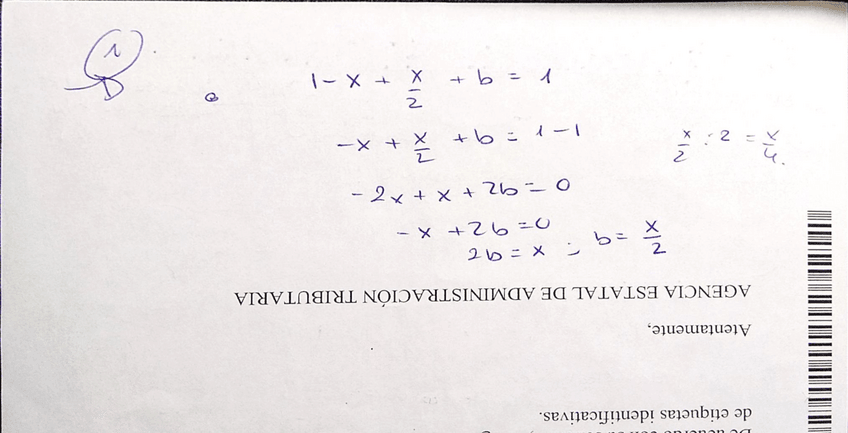 1
1 - x + x/2 + b = 1
-x + x/2 + b = 1 - 1
x/2 : 2 = x/4.
-2x + x + 2b = 0
-x + 2b = 0
2b = x ; b = x/2
AGENCIA ESTATAL DE ADMINISTRACIÓN TRIBUTARIA
Atentamente,
de etiquetas identificativas.